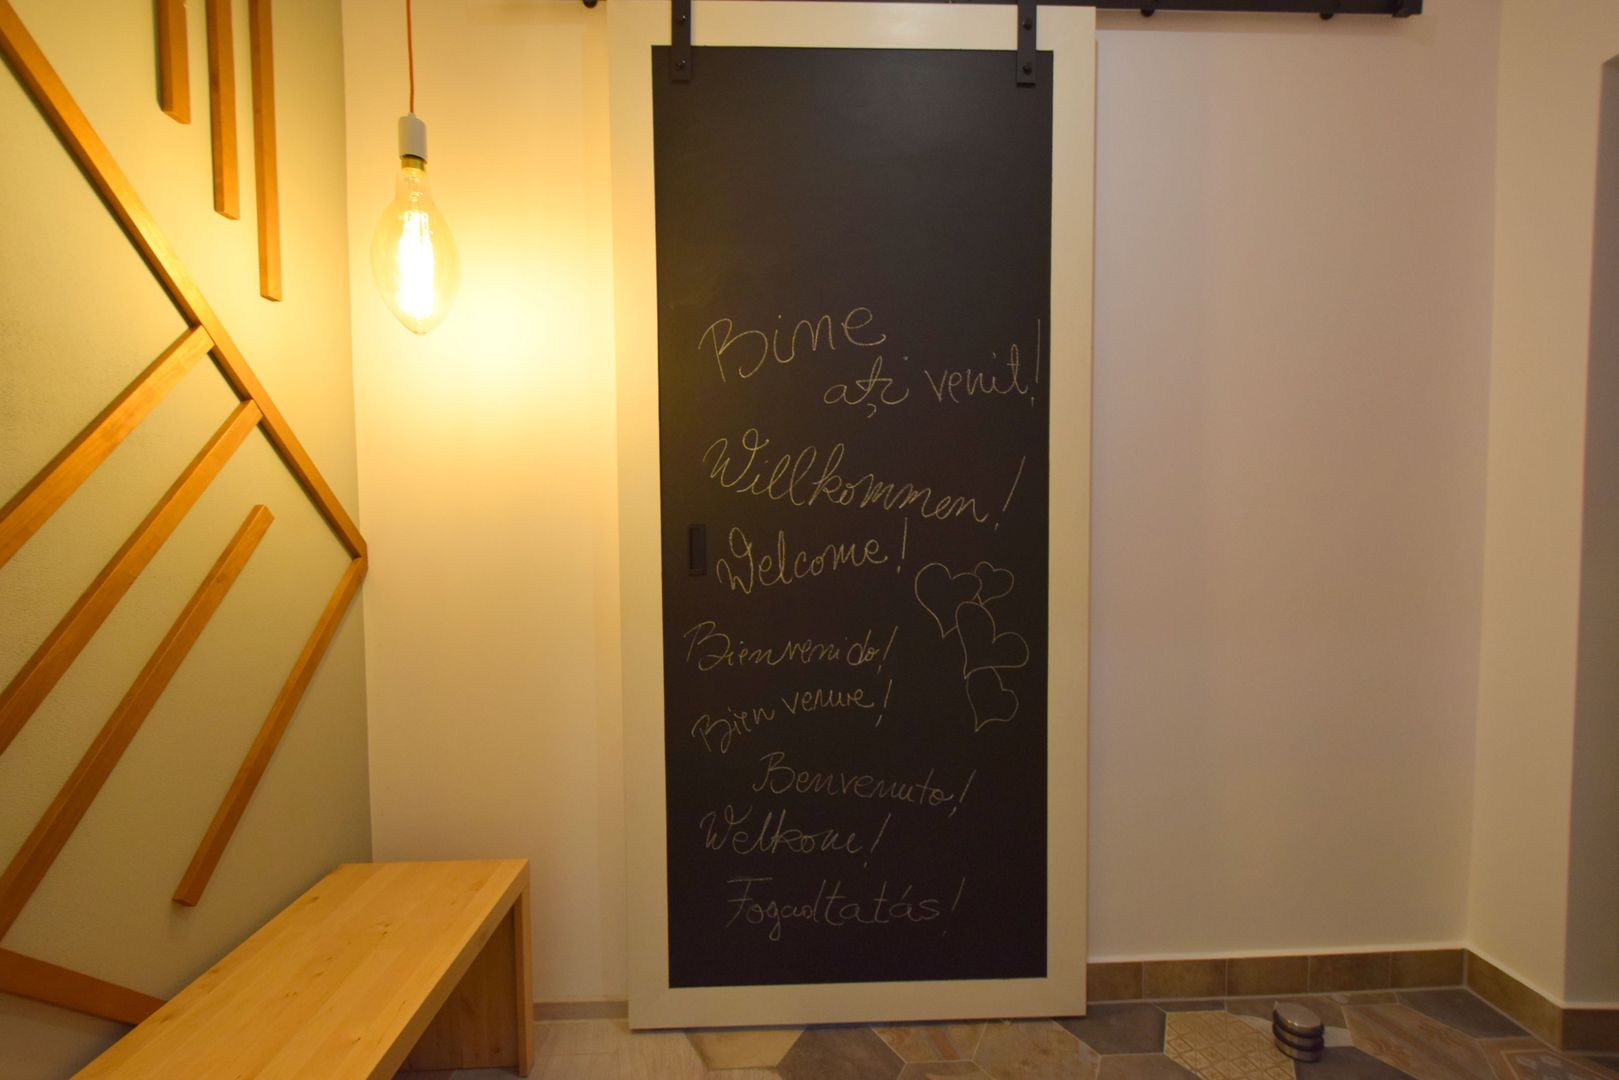 Bine
ați venit!
Willkommen!
Welcome!
Bienvenido!
Bien venue!
Benvenuto!
Welkom!
Fogadtatás!